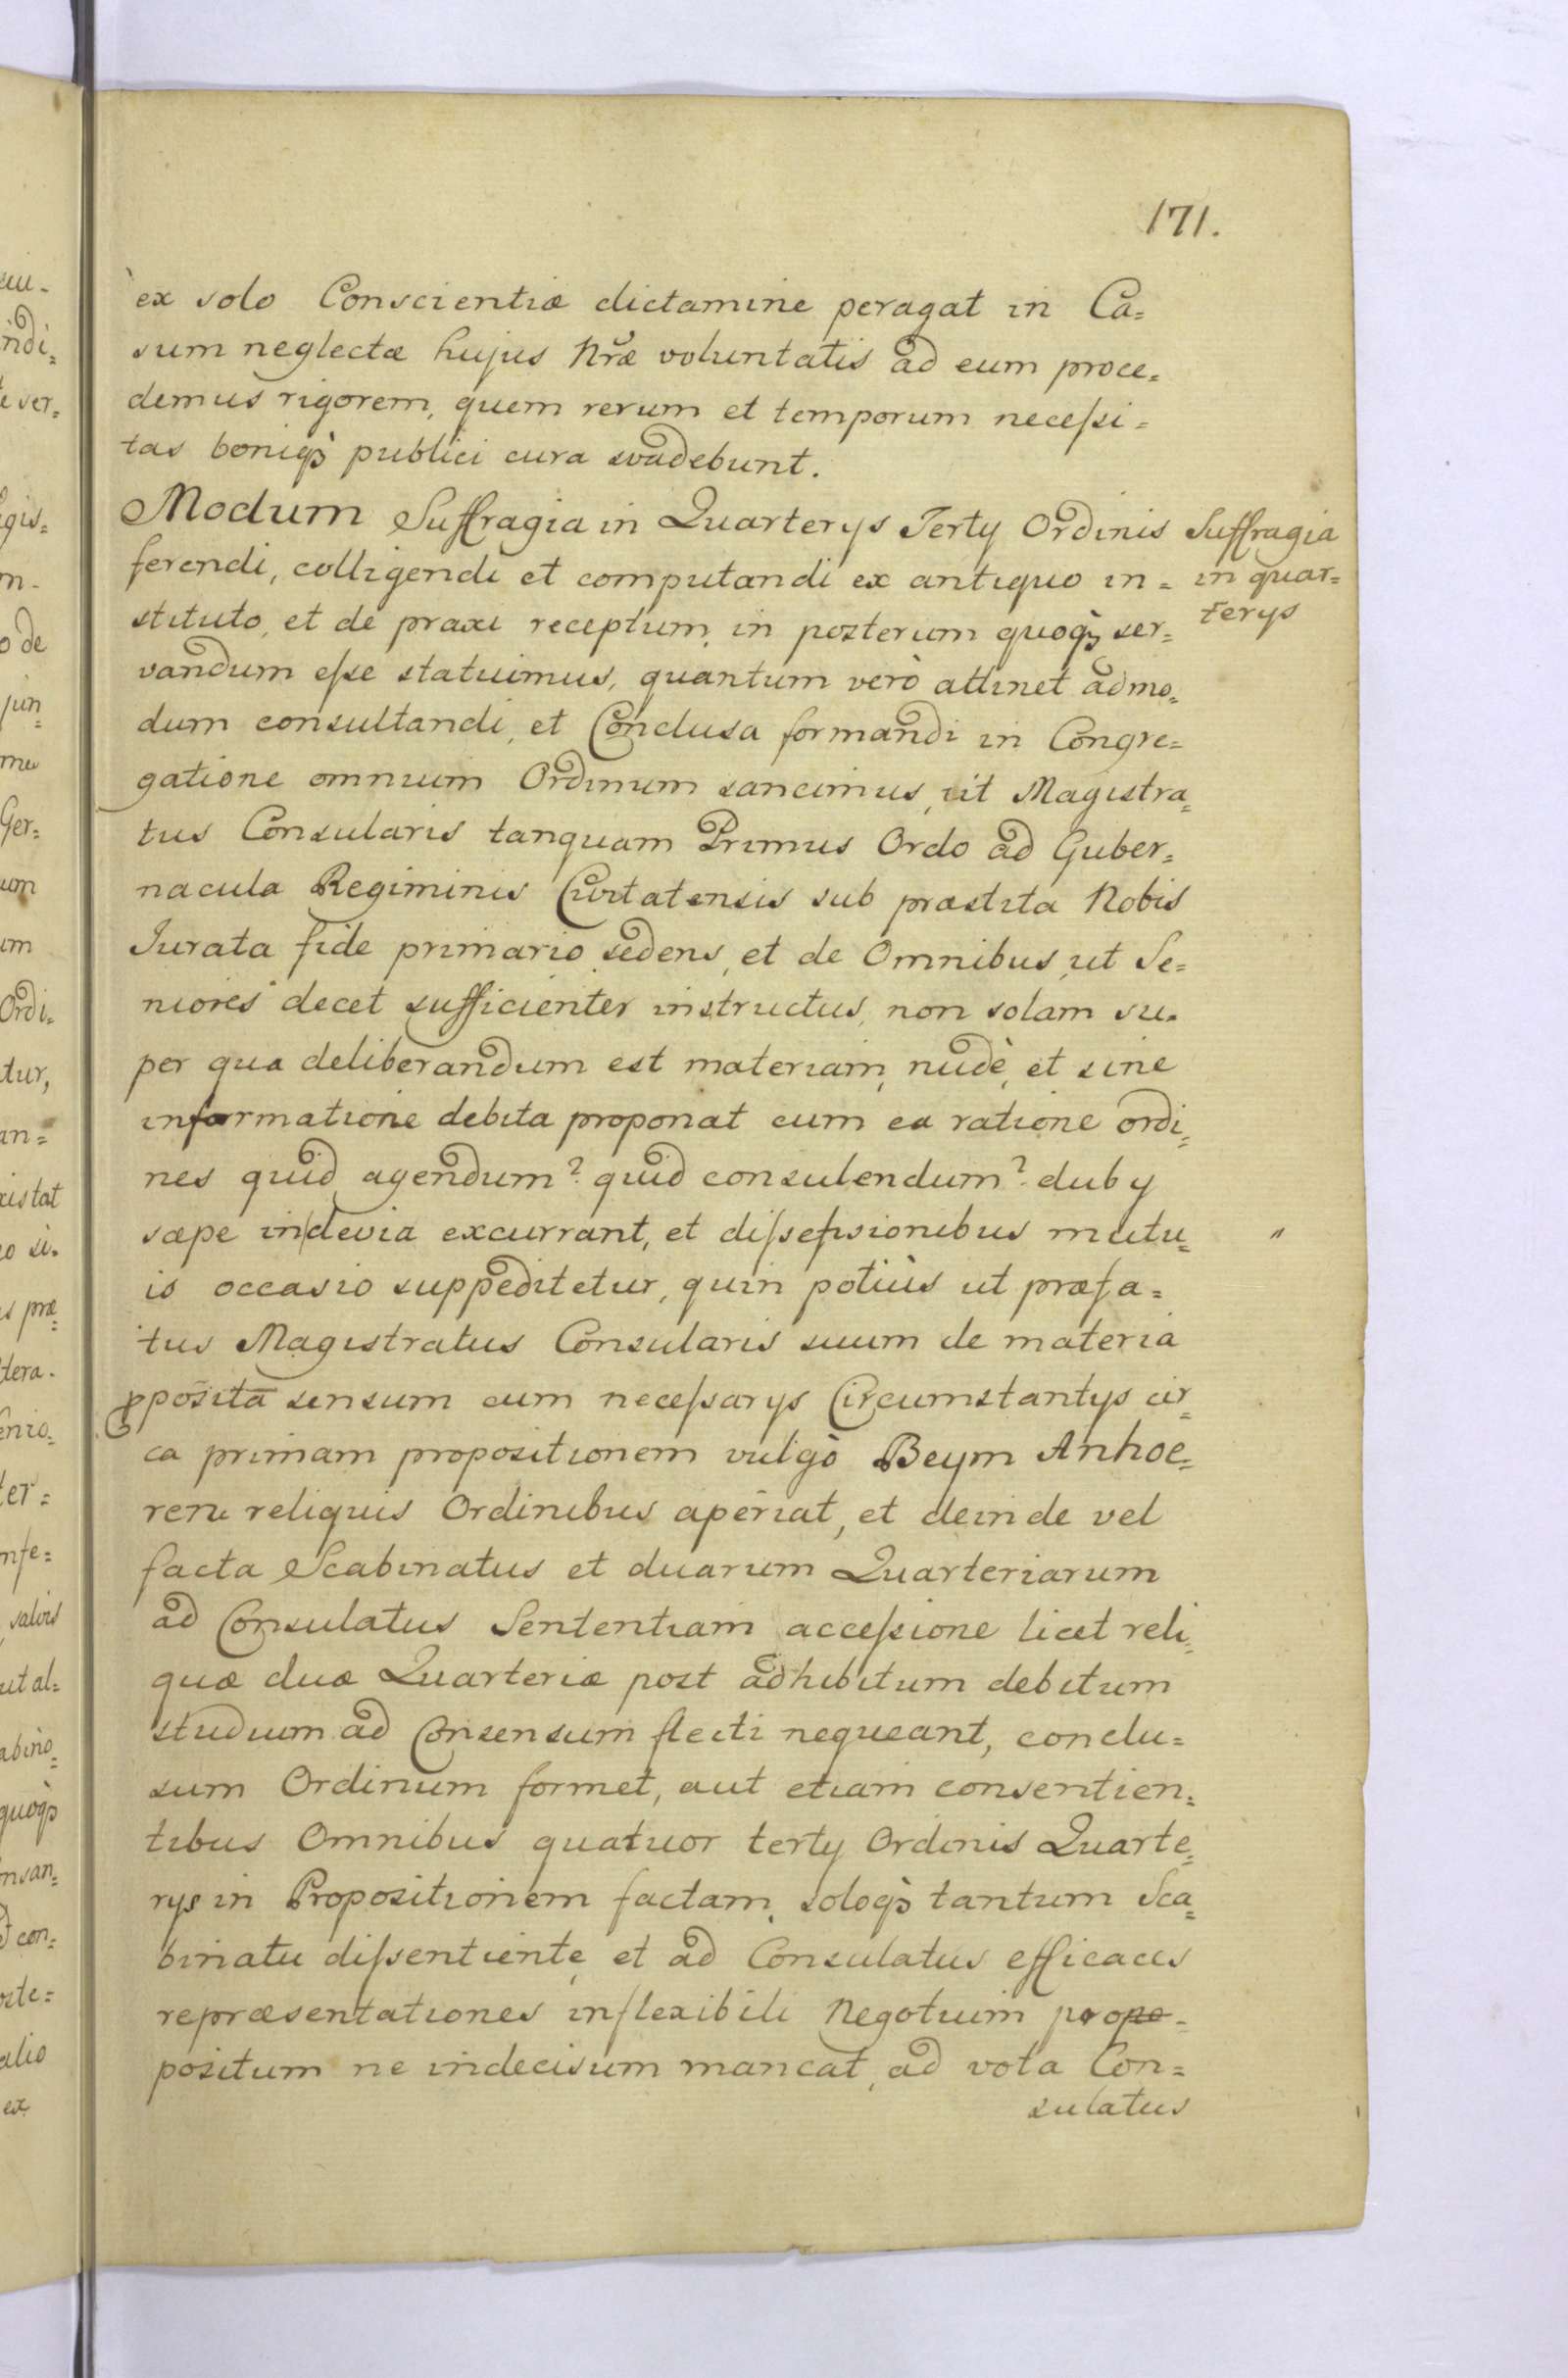 171.
èx solo Conscientiæ dictamine peragat in Ca=
sum neglectæ hujus Nræ voluntatis ad eum proce=
demus rigorem, quem rerum et temporum neceſsi=
tas boniqꝫ publici cura svadebunt.
Modum Suffragia in Quarterys Terty Ordinis
ferendi, colligendi et computandi ex antiquo in=
stituto, et de praxi receptum, in posterum quoqꝫ ser=
vandum eſse statuimus, quantum verò attinet ad mo=
dum consultandi, et Conclusa formandi in Congre=
gatione omnium Ordinum sancimus, ut Magistra=
tus Consularis tanquam Primus Ordo ad Guber=
nacula Regiminis Civitatensis sub præstita Nobis
Jurata fide primario sedens, et de Omnibus, ut Se=
niores decet sufficienter instructus, non solam su=
per qua deliberandum est materiam, nudè, et sine
informatione debita proponat cum ea ratione ordi=
nes quid agendum? quid consulendum? duby
sæpe in devia excurrant, et diſsesionibus mutu=
is occasio suppeditetur, quin potiùs ut præfa=
tus Magistratus Consularis suum de materia
pposita sensum cum neceſsarys Circumstantys cir=
ca primam propositionem vulgò Beym Anhoe=
ren reliquis Ordinibus aperiat, et deinde vel
facta Scabinatus et duarum Quarteriarum
ad Consulatus Sententiam acceſsione licet reli=
quæ duæ Quarteriæ post adhibitum debitum
studium ad Consensum flecti nequeant, conclu=
sum Ordinum formet, aut etiam consentien=
tibus Omnibus quatuor terty Ordinis Quarte=
rys in Propositionem factam, soloqꝫ tantum Sca=
binatu diſsentiente, et ad Consulatus efficaces
repræsentationes inflexibili Negotium propo=
positum ne indecisum maneat, ad vota Con=
sulatus
Suffragia
in quar=
terys
"